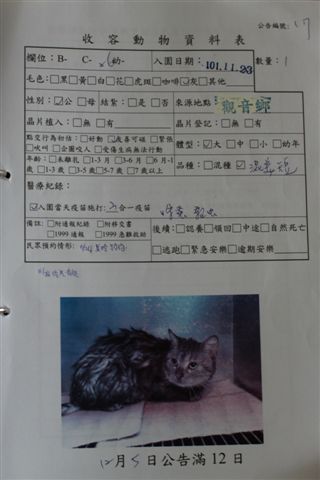 公告編號: 17
收容動物資料表
欄位:B- C- 幼- 入園日期:101.11.23 數量:1
毛色:□黑□黃□白□花□虎斑□咖啡☑灰□其他
性別:☑公□母 結紮:□是□否 來源地點 觀音鄉
晶片植入:□無□有 晶片登記:□無□有
點交行為初估:□好動☑友善可碰□緊張
□吠叫□企圖咬人□受傷生病無法行動
體型:☑大□中□小□幼年
年齡:□未離乳□1-3月□3-6月□6月-1
歲□1-3歲□3-5歲□5-7歲□7歲以上
品種:□混種☑
醫療紀錄:
☑入園當天疫苗施打: 合一疫苗
備註:□附通報紀錄□附移交書
□1999通報□1999急難救助
後續:□認養□領回□中途□自然死亡
民眾預約情形:
□逃跑□緊急安樂□逾期安樂
12月5日公告滿12日